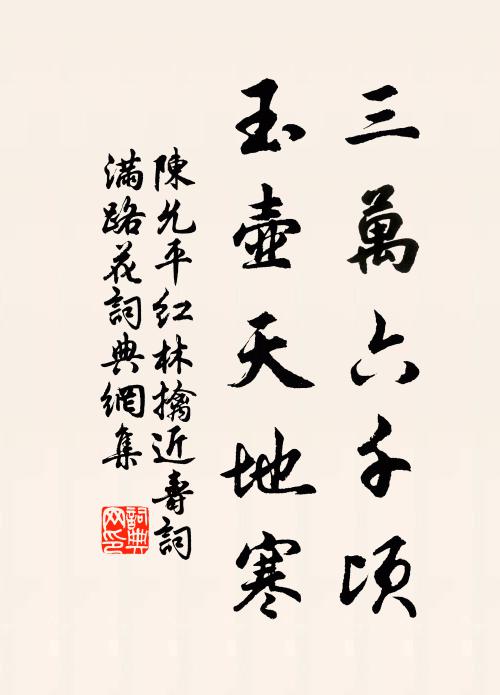 三萬六千頃
玉壺天地寒
陳允平紅林擒近壽詞
滿路花詞典網集
詞典
网印